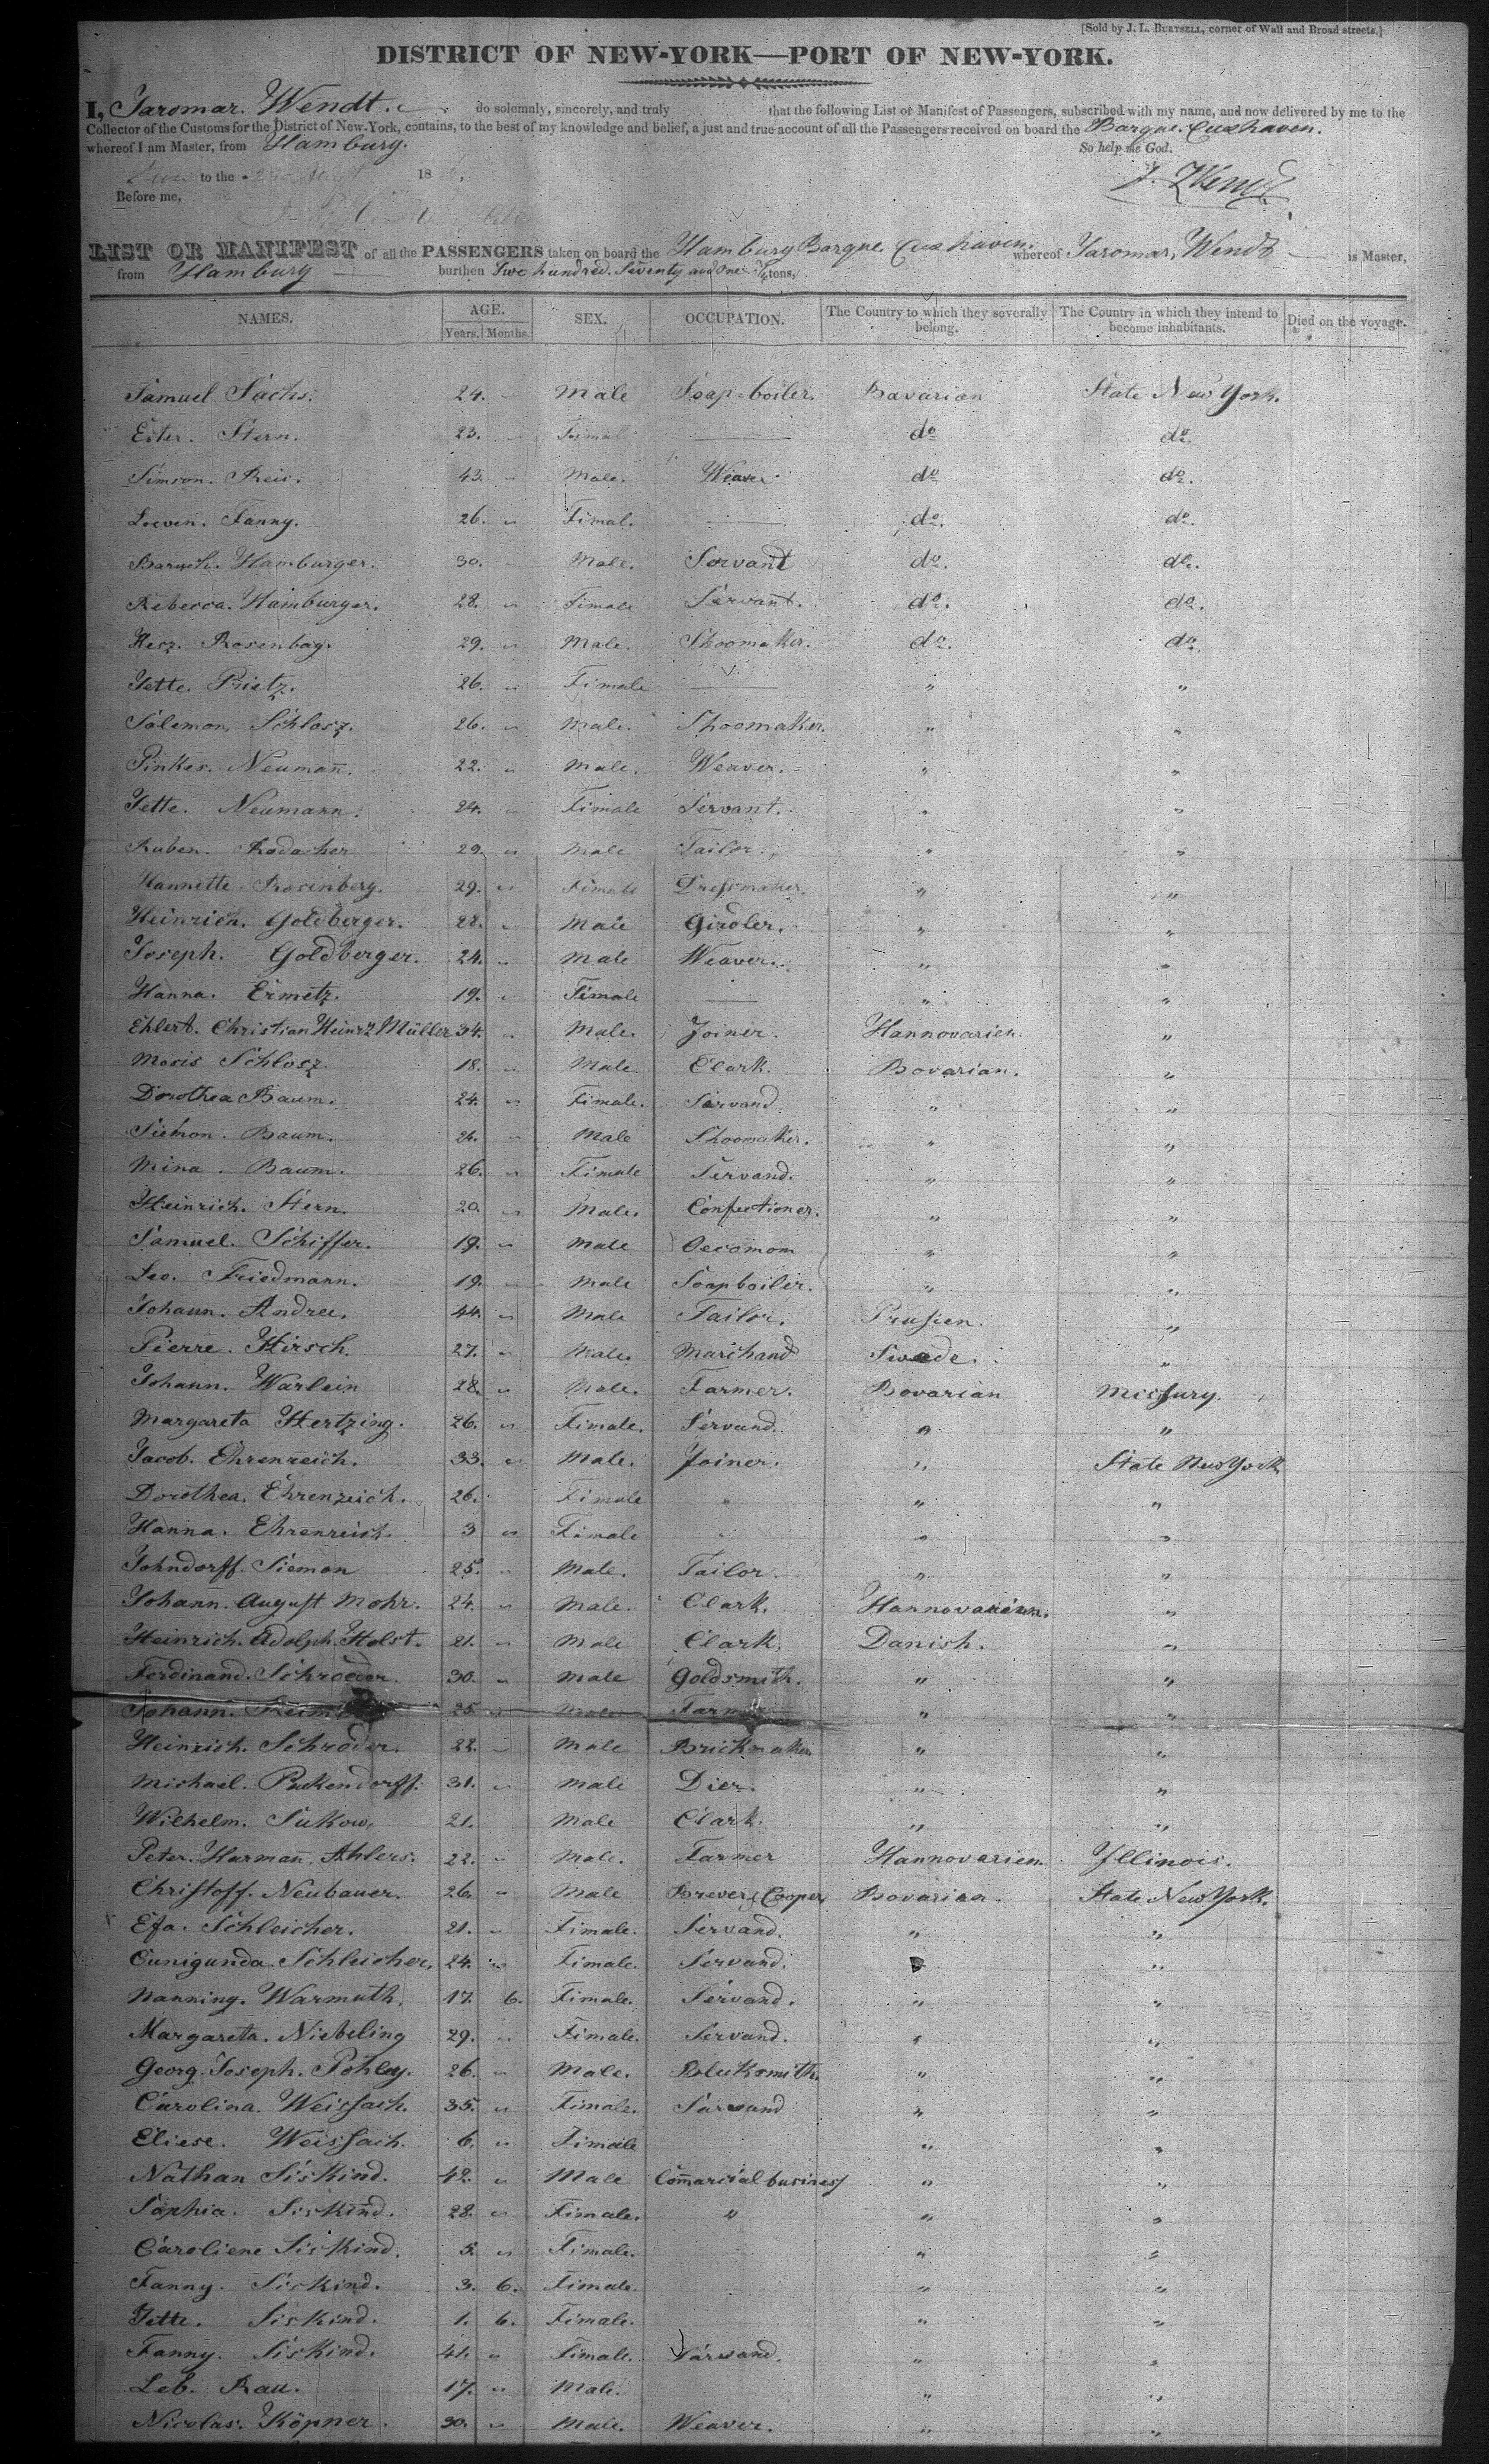 [Sold by J. L. BURTSELL, corner of Wall and Broad streets.]
DISTRICT OF NEW-YORK—PORT OF NEW-YORK.
I, Jaromar. Wendt. do solemnly, sincerely, and truly that the following List or Manifest of Passengers, subscribed with my name, and now delivered by me to the
Collector of the Customs for the District of New-York, contains, to the best of my knowledge and belief, a just and true account of all the Passengers received on board the Barque. Cuxhaven.
whereof I am Master, from Hamburg. So help me God.
to the 18 J. Wendt
Before me,
LIST OR MANIFEST of all the PASSENGERS taken on board the Hamburg Barque Cuxhaven. whereof Jaromar, Wendt is Master,
from Hamburg burthen Two hundred. Seventy and One tons,
NAMES. AGE. SEX. OCCUPATION. The Country to which they severally belong. The Country in which they intend to become inhabitants. Died on the voyage.
Years. Months.
Samuel Sachs. 24. Male Soap-boiler. Bavarian State New York.
Ester. Stern. 23. Fimal do do.
Simson. Reis. 43. " Male. Weaver do do.
Loeven. Fanny. 26. " Fimal. do. do.
Baruch. Hamburger. 30. Male. Servant do. do.
Rebecca. Hamburger. 28. " Fimale Servant. do. do.
Herz. Rosenbag. 29. " Male. Shoomaker. do. do.
Jette. Prietz. 26. " Fimale " "
Salemon, Schlosz. 26. " Male. Shoomaker. " "
Pinkes. Neumann. 22. " Male. Weaver. " "
Jette. Neumann. 24. " Fimale Servant. " "
Ruben. Rodacher 29. " Male Tailor. " "
Hannette. Rosenberg. 29. " Fimale Dressmaker. " "
Heinrich. Goldberger. 28. " Male Girdler. " "
Joseph. Goldberger. 24. " Male Weaver. " "
Hanna. Ermetz. 19. " Fimale " "
Ehlert. Christian Heinr. Müller 34. " Male. Joiner. Hannovarien. "
Mosis Schlosz 18. " Male Clark. Bovarian. "
Dorothea Baum. 24. " Fimale. Servand " "
Siemon. Baum. 24. " Male Shoomaker. " "
Mina. Baum. 26. " Fimale Servand. " "
Heinrich. Stern. 20. " Male. Confectioner. " "
Samuel. Schiffer. 19. " Male Oeconom " "
Leo. Friedmann. 19. " Male Soapboiler. " "
Johann. Andree. 44. " Male Tailor. Prussien. "
Pierre. Hirsch. 27. " Male. Marchand Swede. "
Johann. Warlein 28. " Male. Farmer. Bovarian Missury.
Margareta Hertzing. 26. " Fimale. Servand. " "
Jacob. Ehrenreich. 33. " Male. Joiner. " State New York
Dorothea. Ehrenreich. 26. Fimale " " "
Hanna. Ehrenreich. 3 " Fimale " " "
Johndorff. Siemon 25. " Male. Tailor. " "
Johann. August Mohr. 24. " Male. Clark. Hannovarien. "
Heinrich. Adolph. Holst. 21. " Male Clark. Danish. "
Ferdinand. Schroeder. 30. " Male Goldsmith. " "
Johann. 25 " Male Farmer " "
Heinrich. Schroder. 22. " Male Brickmaker. " "
Michael. Puckendorff. 31. " Male Dier. " "
Wilhelm. Sukow. 21. Male Clark. " "
Peter. Harmann. Ahlers. 22. " Male. Farmer Hannovarien. Illinois.
Christoff. Neubauer. 26. " Male Brever & Cooper Bovarian. State New York.
Efa. Schleicher. 21. " Fimale. Servand. " "
Cunigunda. Schleicher. 24. " Fimale. Servand. " "
Nanning. Warmuth. 17. 6. Fimale. Servand. " "
Margareta. Niebeling 29. " Fimale. Servand. " "
Georg. Joseph. Pohley. 26. " Male. Blacksmith. " "
Carolina. Weissach. 35. " Fimale. Servand " "
Eliese. Weissach. 6. " Fimale " "
Nathan Siskind. 42. " Male Commarcial business " "
Sophia. Siskind. 28. " Fimale. " " "
Caroliene Siskind. 5. " Fimale. " "
Fanny. Siskind. 3. 6. Fimale. " "
Jette. Siskind. 1. 6. Fimale. " "
Fanny. Siskind. 41. " Fimale. Servand. " "
Leb. Rau. 17. " Male. " "
Nicolas. Köpner. 30. " Male. Weaver. " "